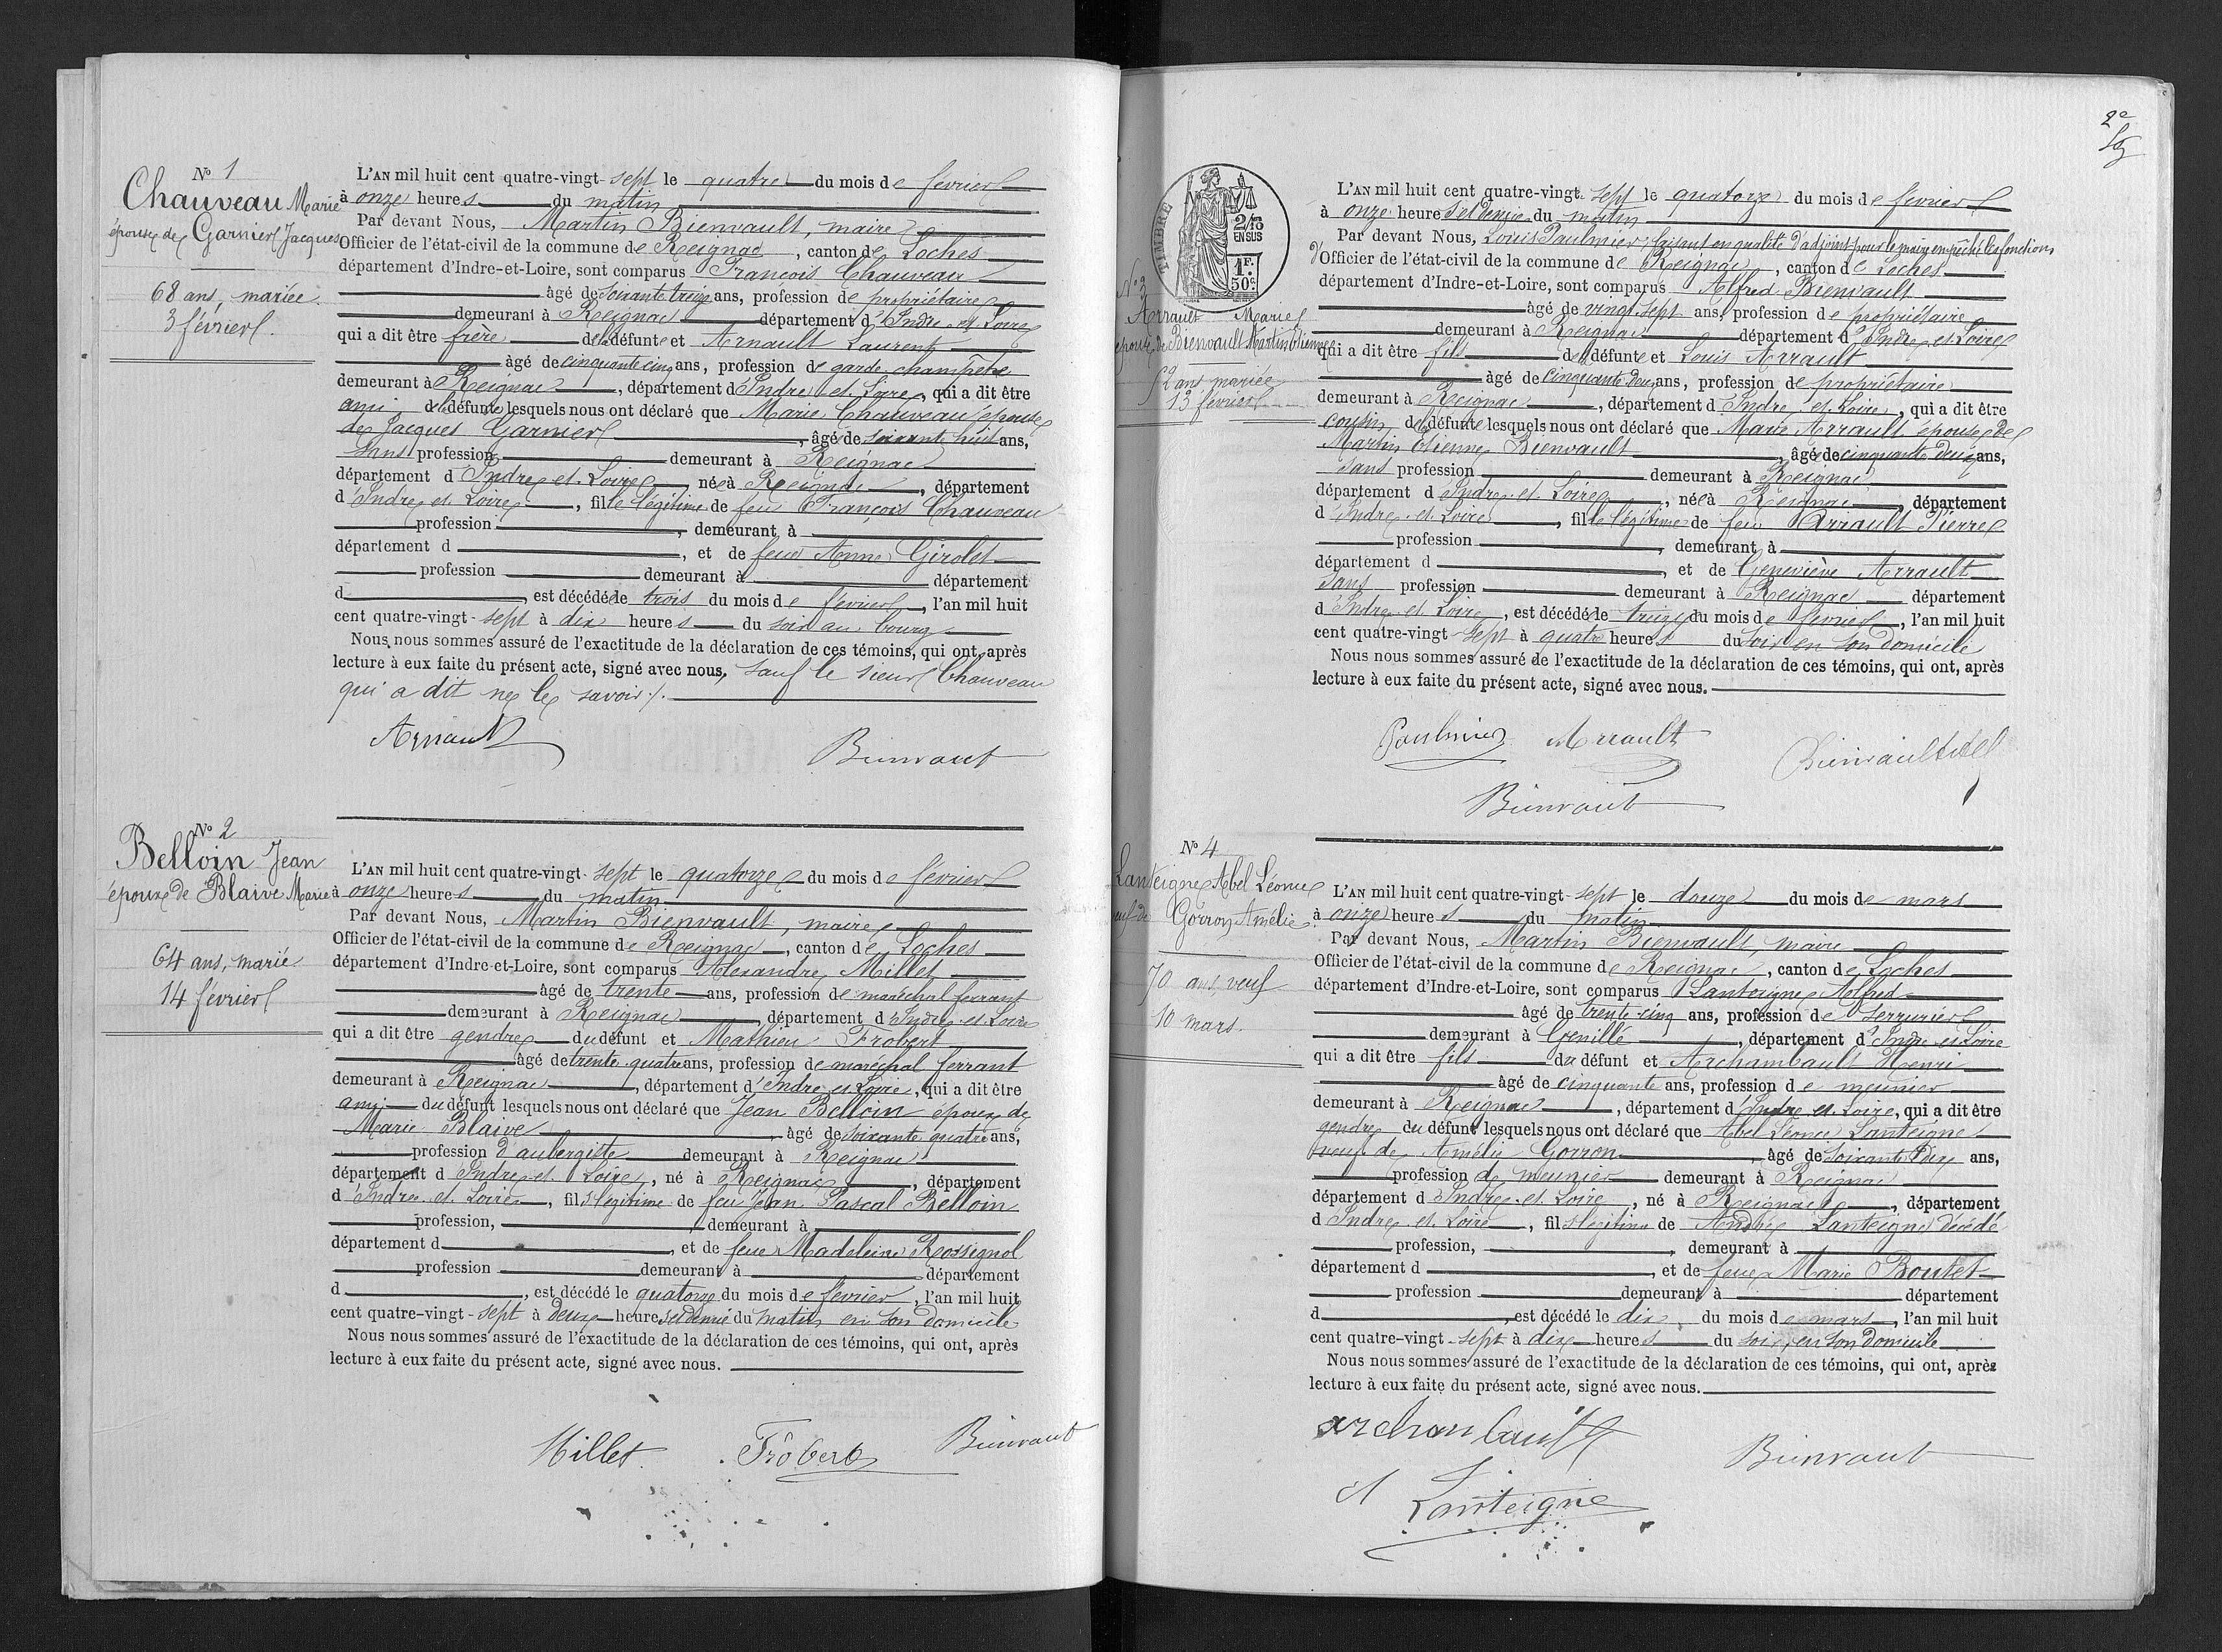 Nº 1
Chauveau Marie
épouse de Garnier Jacques
68 ans, mariée
3 février
L'AN mil huit cent quatre-vingt-sept le quatre du mois de février
à onze heures du matin
Par devant Nous, Martin Bienvault, maire
Officier de l'état-civil de la commune de Reignac, canton de Loches
département d'Indre-et-Loire, sont comparus François Chauveau
âgé de soixante treize ans, profession de propriétaire
demeurant à Reignac département d'Indre et Loire
qui a dit être frère de la défunte et Arnault Laurent
âgé de cinquante cinq ans, profession de garde champêtre
demeurant à Reignac, département d'Indre et Loire, qui a dit être
ami de la défunte lesquels nous ont déclaré que Marie Chauveau épouse
de Jacques Garnier, âgé de soixante huit ans,
sans profession demeurant à Reignac
département d'Indre et Loire, née à Reignac, département
d'Indre et Loire, fille légitime de feu François Chauveau
profession, demeurant à
département d, et de feue Anne Gérolet
profession demeurant à département
d, est décédée le trois du mois de février, l'an mil huit
cent quatre-vingt-sept à dix heures du soir au bourg
Nous nous sommes assuré de l'exactitude de la déclaration de ces témoins, qui ont, après
lecture à eux faite du présent acte, signé avec nous, sauf le sieur Chauveau
qui a dit ne le savoir ./.
Arnault
Bienvault
Nº 2
Belloin Jean
époux de Blaive Marie
64 ans, marié
14 février
L'AN mil huit cent quatre-vingt-sept le quatorze du mois de février
à onze heures du matin
Par devant Nous, Martin Bienvault, maire
Officier de l'état-civil de la commune de Reignac, canton de Loches
département d'Indre-et-Loire, sont comparus Alexandre Millet
âgé de trente ans, profession de maréchal ferrant
demeurant à Reignac, département d'Indre et Loire
qui a dit être gendre du défunt et Mathieu Frobert
âgé de trente quatre ans, profession de maréchal ferrant
demeurant à Reignac, département d'Indre et Loire, qui a dit être
ami du défunt lesquels nous ont déclaré que Jean Belloin époux de
Marie Blaive, âgé de soixante quatre ans,
profession d'aubergiste demeurant à Reignac
département d'Indre et Loire, né à Reignac, département
d'Indre et Loire, fils légitime de feu Jean Pascal Belloin
profession, demeurant à
département d, et de feue Madeleine Rossignol
profession demeurant à département
d, est décédé le quatorze du mois de février, l'an mil huit
cent quatre-vingt-sept à deux heures et demie du matin en son domicile
Nous nous sommes assuré de l'exactitude de la déclaration de ces témoins, qui ont, après
lecture à eux faite du présent acte, signé avec nous.
Millet
Frobert
Bienvault
2e
TIMBRE
2/10
EN SUS
1F.
50c.
Nº 3
Arrault Marie
épouse de Bienvault Martin Etienne
52 ans mariée
13 février
L'AN mil huit cent quatre-vingt-sept le quatorze du mois de février
à onze heures et demie du matin
Par devant Nous, Louis Paulmier, faisant en qualité d'adjoint pour le maire empêché les fonctions
d'Officier de l'état-civil de la commune de Reignac, canton de Loches
département d'Indre-et-Loire, sont comparus Alfred Bienvault
âgé de vingt-sept ans, profession de propriétaire
demeurant à Reignac département d'Indre et Loire
qui a dit être fils de la défunte et Louis Arrault
âgé de cinquante deux ans, profession de propriétaire
demeurant à Reignac, département d'Indre et Loire, qui a dit être
cousin de la défunte lesquels nous ont déclaré que Marie Arrault épouse de
Martin Etienne Bienvault, âgé de cinquante deux ans,
sans profession demeurant à Reignac
département d'Indre et Loire, née à Reignac, département
d'Indre et Loire, fille légitime de feu Arrault Pierre
profession, demeurant à
département d, et de Geneviève Arrault
sans profession demeurant à Reignac département
d'Indre et Loire, est décédé le treize du mois de février, l'an mil huit
cent quatre-vingt-sept à quatre heures du soir en son domicile
Nous nous sommes assuré de l'exactitude de la déclaration de ces témoins, qui ont, après
lecture à eux faite du présent acte, signé avec nous.
Paulmier
Arrault
Bienvault
Nº 4
Lanteigne Abel Léonce
veuf de Gorron Amélie
70 ans, veuf
10 mars.
L'AN mil huit cent quatre-vingt-sept le douze du mois de mars
à onze heures du matin
Par devant Nous, Martin Bienvault, maire
Officier de l'état-civil de la commune de Reignac, canton de Loches
département d'Indre-et-Loire, sont comparus Lanteigne Alfred
âgé de trente cinq ans, profession de serrurier
demeurant à Genillé, département d'Indre et Loire
qui a dit être fils du défunt et Archambault Henri
âgé de cinquante ans, profession de meunier
demeurant à Reignac, département d'Indre et Loire, qui a dit être
gendre du défunt lesquels nous ont déclaré que Abel Léonce Lanteigne
veuf de Amélie Gorron, âgé de soixante dix ans,
profession de meunier demeurant à Reignac
département d'Indre et Loire, né à Reignac, département
d'Indre et Loire, fils légitime de André Lanteigne décédé
profession, demeurant à
département d, et de feue Marie Boutet
profession demeurant à département
d, est décédé le dix du mois de mars, l'an mil huit
cent quatre-vingt-sept à dix heures du soir, en son domicile
Nous nous sommes assuré de l'exactitude de la déclaration de ces témoins, qui ont, après
lecture à eux faite du présent acte, signé avec nous.
archambault
Bienvault
A Lanteigne